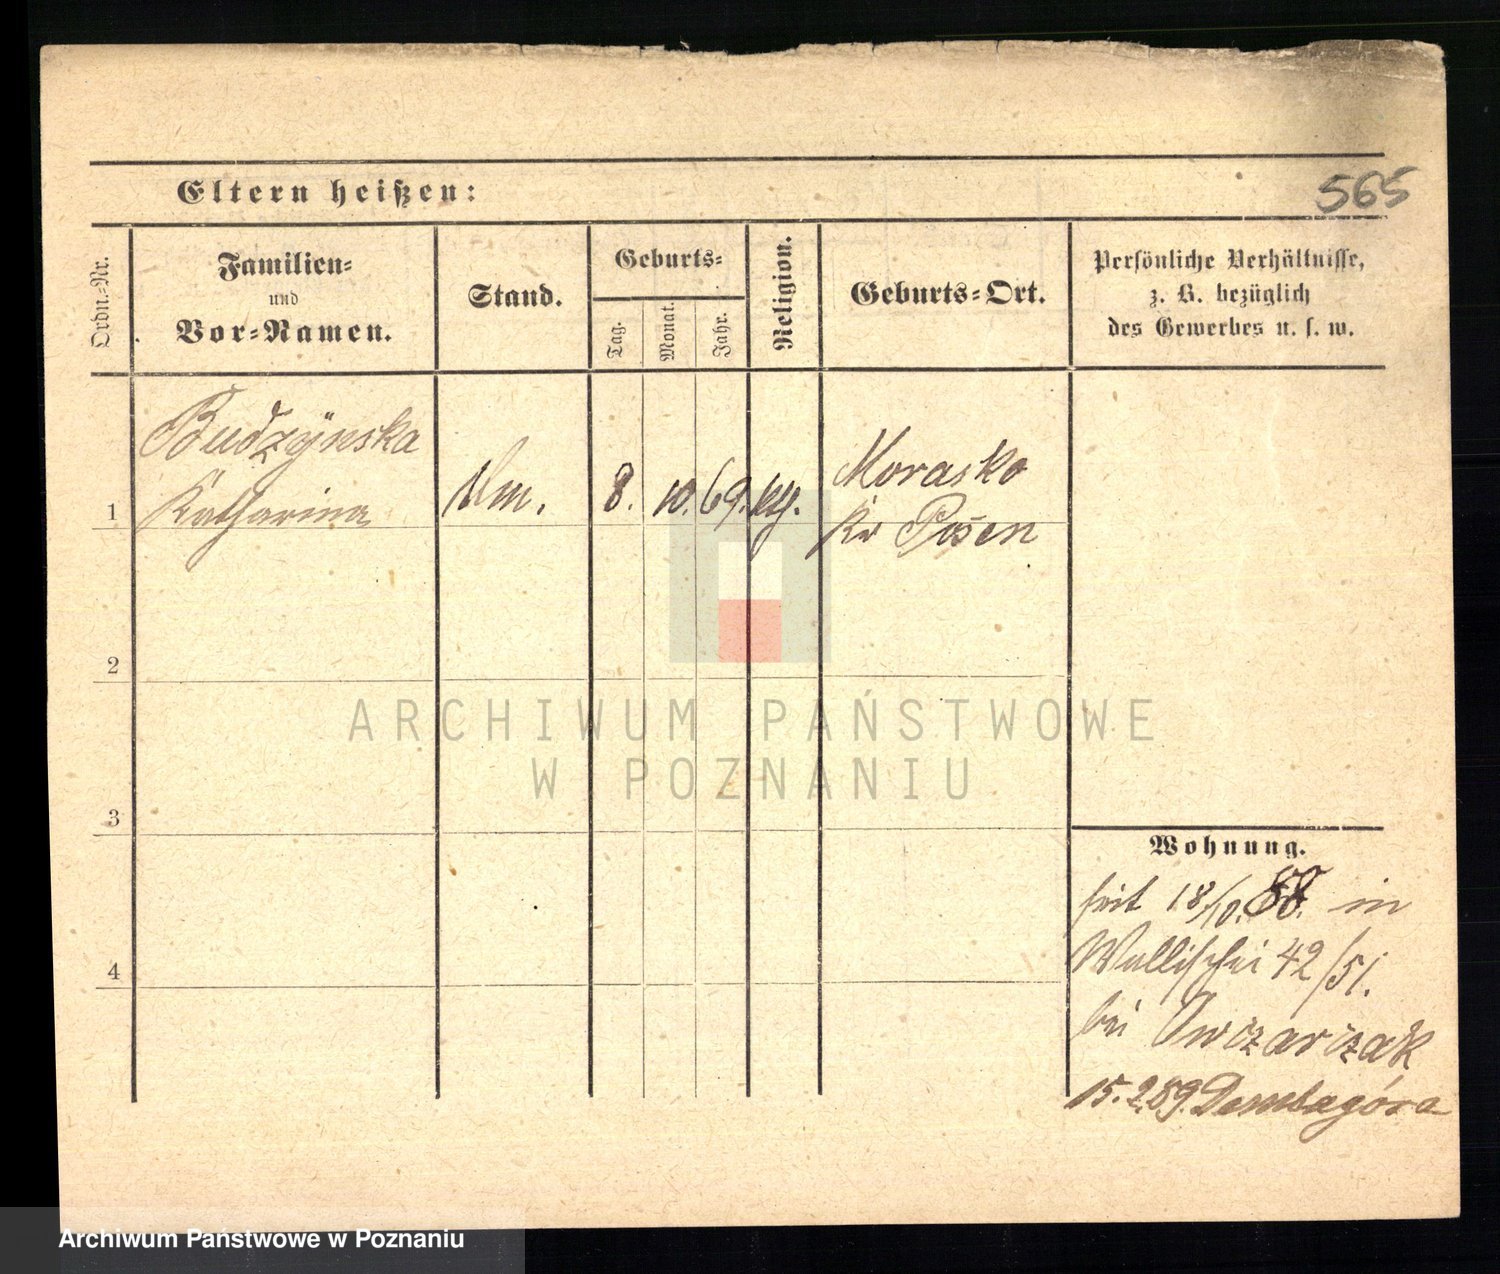 565
Eltern heißen:
Ordn.-Nr.
Familien-
und
Vor-Namen.
Stand.
Geburts-
Tag.
Monat.
Jahr.
Religion.
Geburts-Ort.
Persönliche Verhältnisse,
z. B. bezüglich
des Gewerbes u. s. w.
1
Budzynska
Katharina
8. 10. 69. kth.
Morasko
Kr Posen
2
3
4
Wohnung.
seit 18/10. 88. in
Wallischei 42/51.
bei Owczarczak
15.2.89. Dembagóra
ARCHIWUM PAŃSTWOWE
W POZNANIU
Archiwum Państwowe w Poznaniu